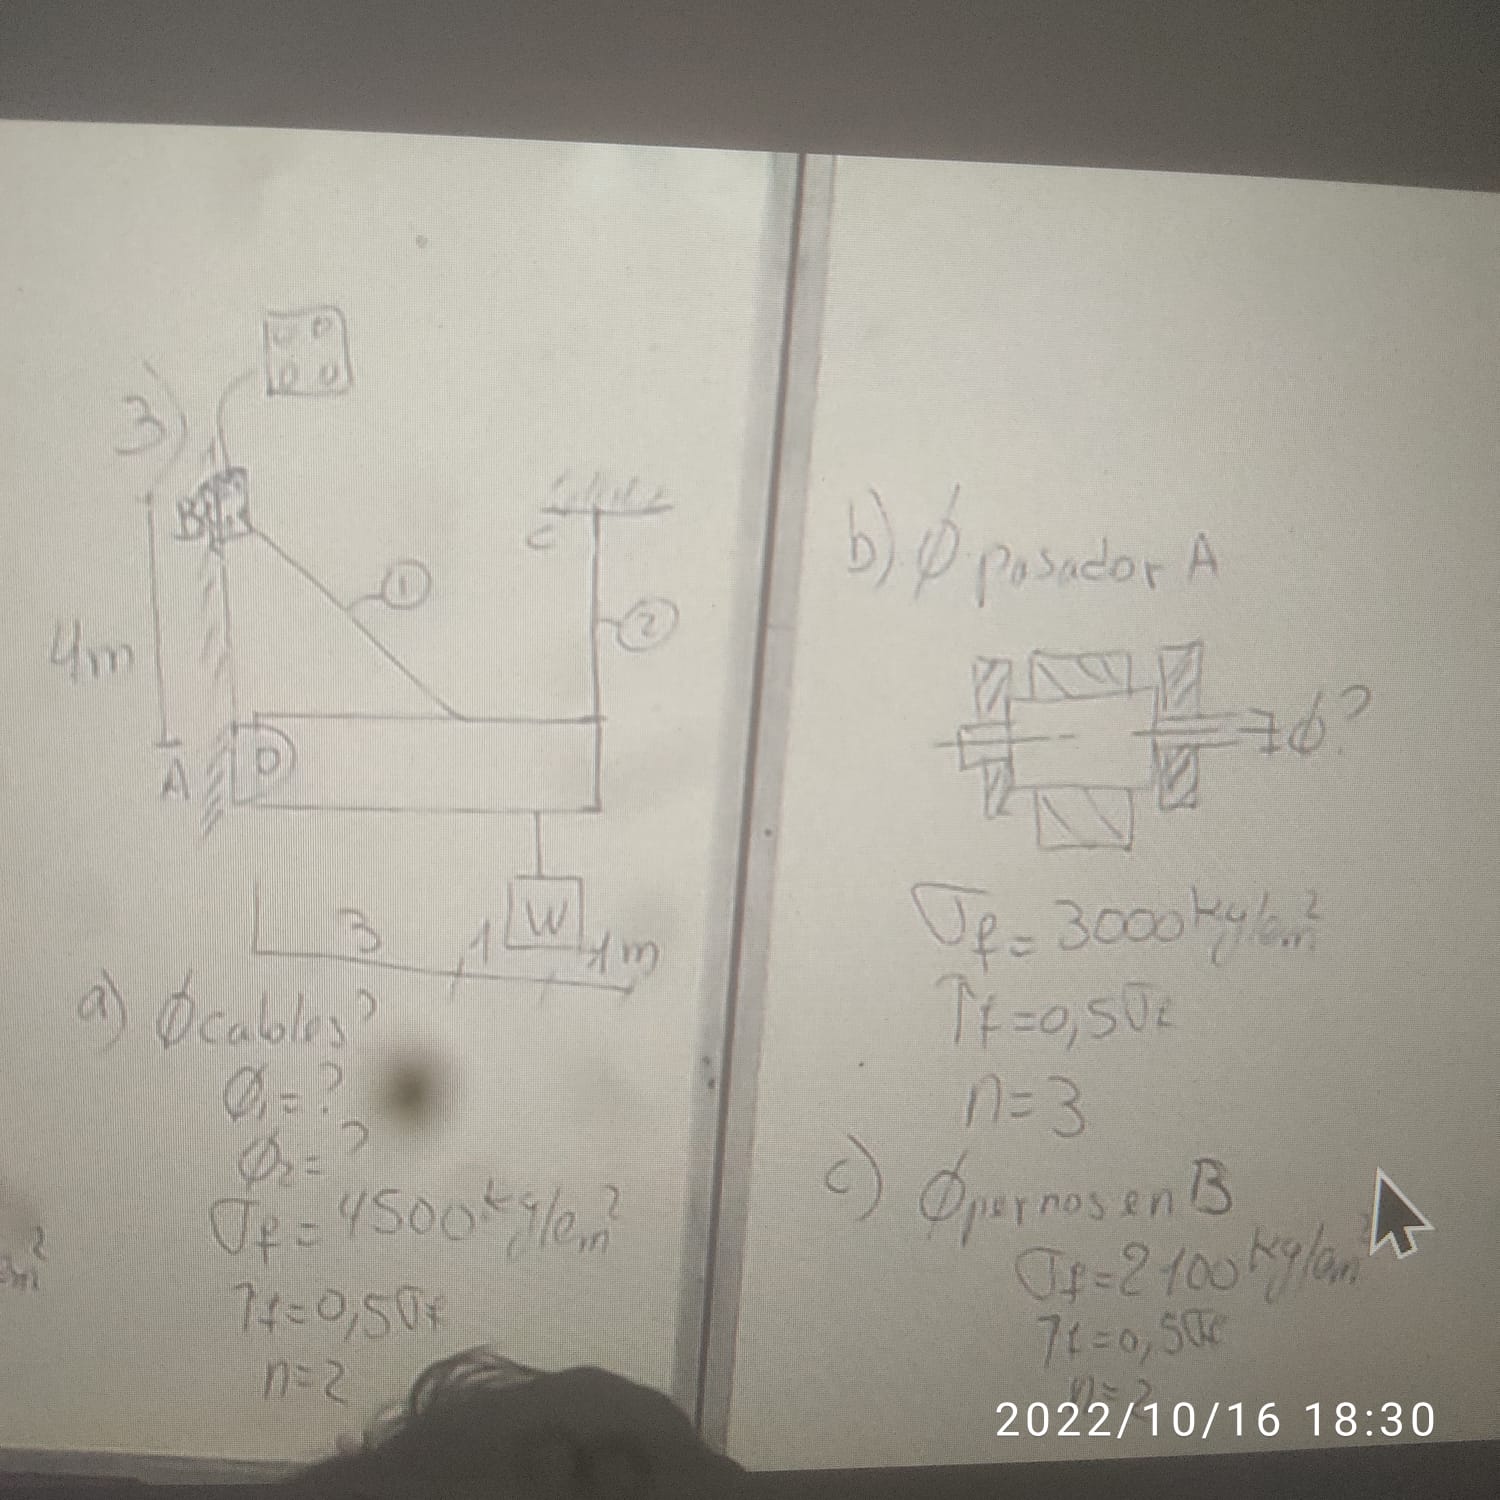 3)
B
1
C
2
4m
A
3 1 W 1m
a) Ø cables?
Ø₁=?
Ø₂=?
σf = 4500 kg/cm²
τf=0,5σf
n=2
b) Ø pasador A
Ø?
σf = 3000 kg/cm²
τf=0,5σf
n=3
c) Ø pernos en B
σf=2100 kg/cm²
τf=0,5σf
n=2
m²
2022/10/16 18:30